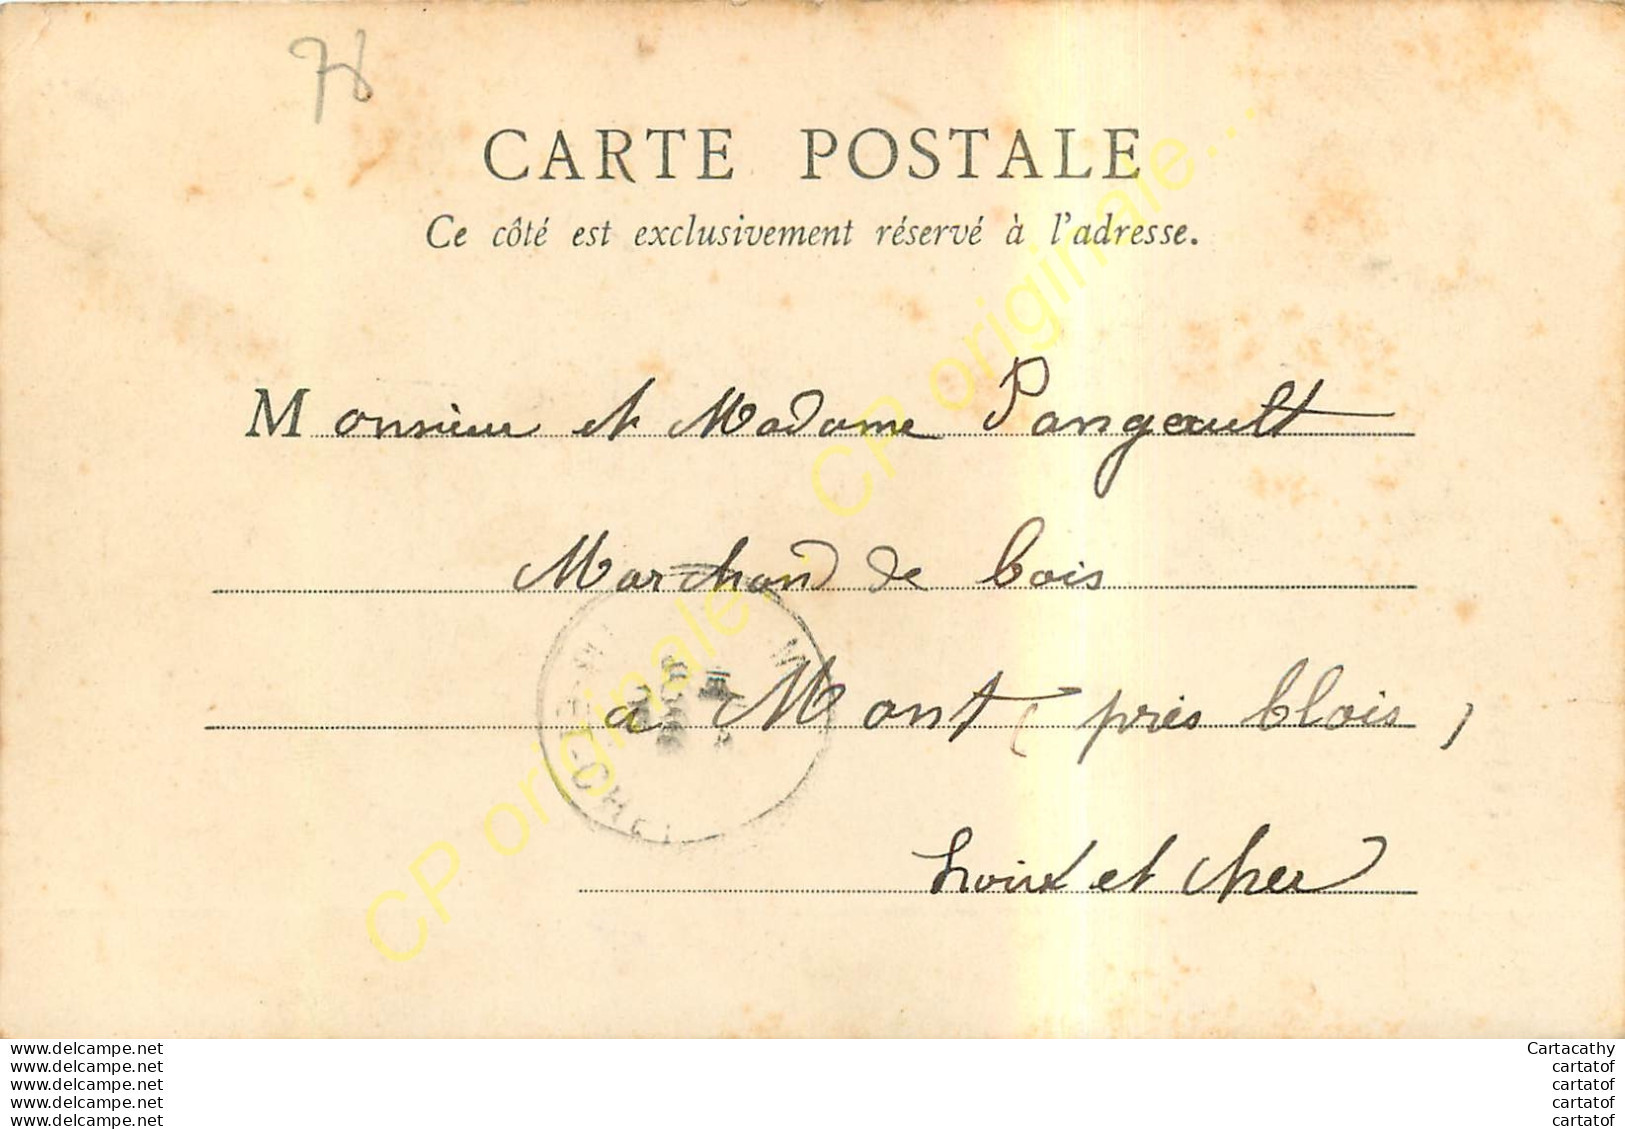 78
CARTE POSTALE
Ce côté est exclusivement réservé à l'adresse.
Monsieur et Madame Pangeault
Marchand de bois
à Mont près blois,
Loir et Cher
CP originale... CP originale...
www.delcampe.net
www.delcampe.net
www.delcampe.net
www.delcampe.net
www.delcampe.net
Cartacathy
cartatof
cartatof
cartatof
cartatof